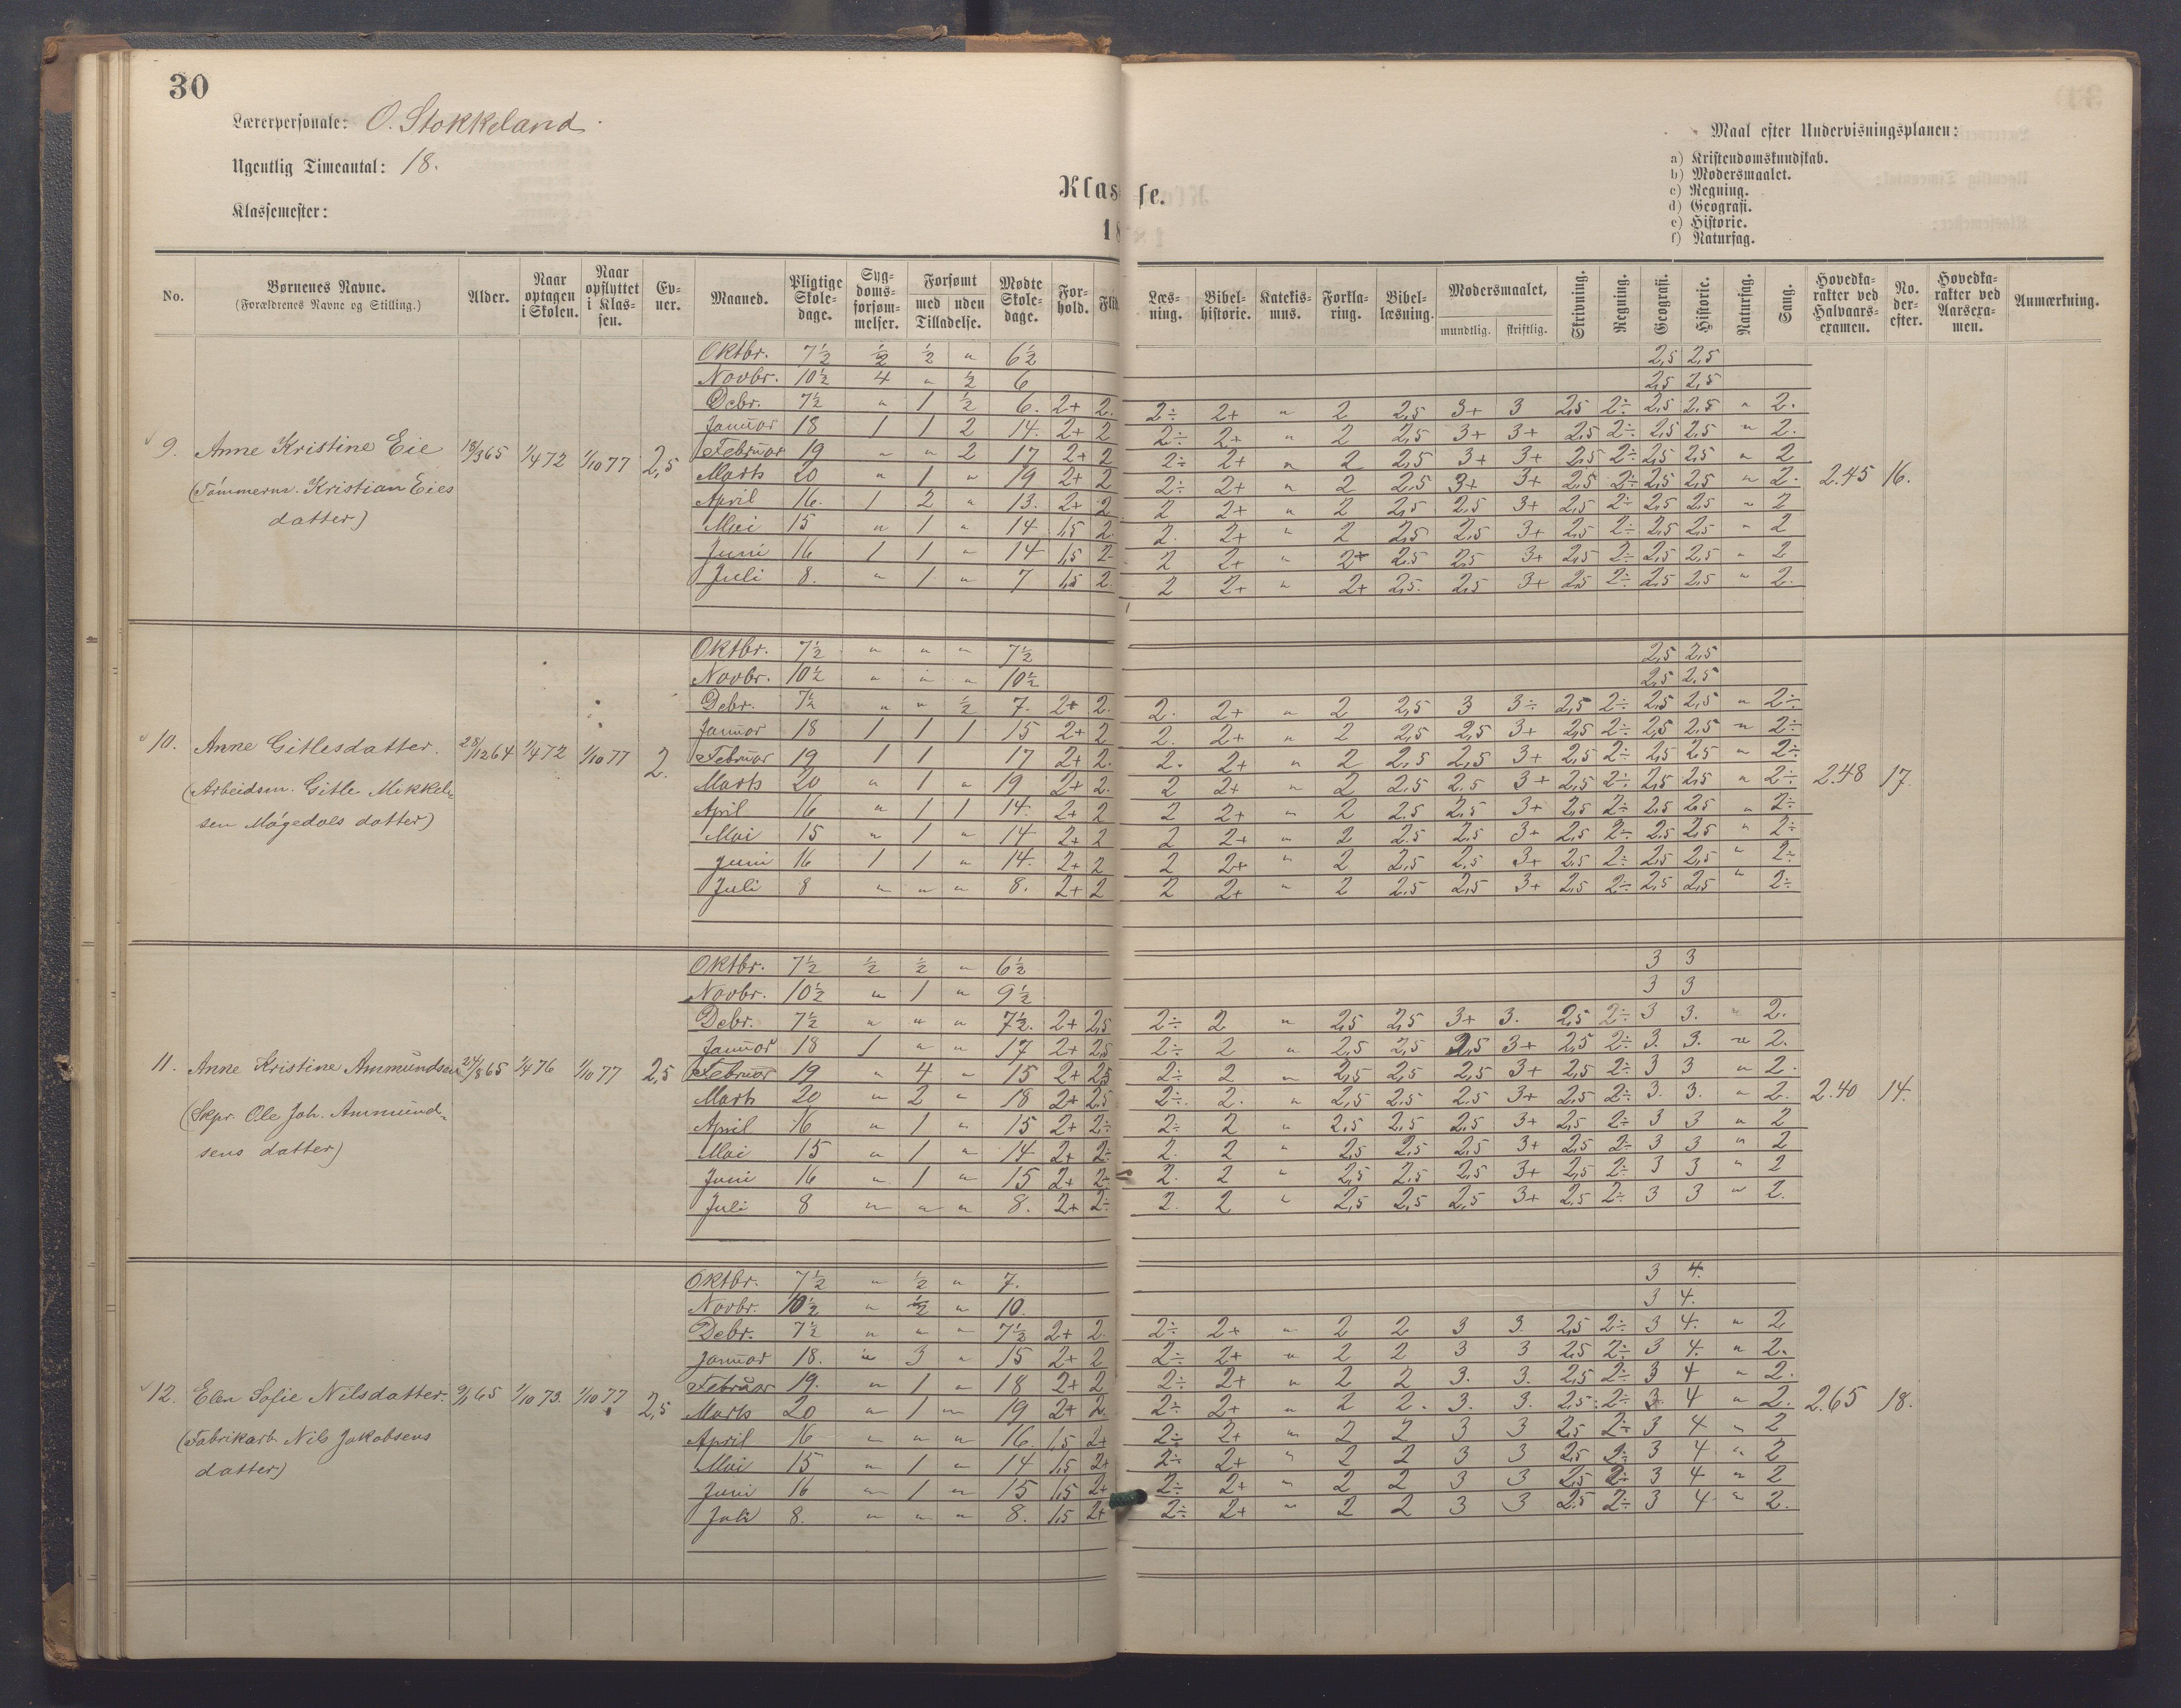 30
Lærerpersonale: O. Stokkeland.
Ugentlig Timeantal: 18.
Klassemester:
Klasse.
18
Maal efter Undervisningsplanen:
a) Kristendomskundskab.
b) Modersmaalet.
c) Regning.
d) Geografi.
e) Historie.
f) Naturfag.
No. Børnenes Navne. (Forældrenes Navne og Stilling.) Alder. Naar optagen i Skolen. Naar opflyttet i Klassen. Evner. Maaned. Pligtige Skoledage. Sygdomsforsømmelser. Forsømt med uden Tilladelse. Mødte Skoledage. Forhold. Flid Læsning. Bibelhistorie. Katekismus. Forklaring. Bibellæsning. Modersmaalet, mundtlig. skriftlig. Skrivning. Regning. Geografi. Historie. Naturfag. Sang. Hovedkarakter ved Halvaarsexamen. No. derefter. Hovedkarakter ved Aarsexamen. Anmærkning.
Oktbr. 7½ ½ ½ " 6½ 2,5 2,5
Novbr. 10½ 4 " ½ 6 2,5 2,5
Debr. 7½ " 1 ½ 6. 2+ 2. 2÷ 2+ " 2 2,5 3+ 3 2,5 2÷ 2,5 2,5 " 2.
Januar 18 1 1 2 14. 2+ 2 2÷ 2+ " 2 2,5 3+ 3+ 2,5 2÷ 2,5 2,5 " 2.
9. Anne Kristine Eie 18/3 65 1/4 72 1/10 77 2,5 Februar 19 " " 2 17 2+ 2 2÷ 2+ " 2 2,5 3+ 3+ 2,5 2÷ 2,5 2,5 " 2
(Tømmerm. Kristian Eies Marts 20 " 1 " 19 2+ 2 2÷ 2+ " 2 2,5 3+ 3+ 2,5 2÷ 2,5 2,5 " 2. 2.45 16.
datter) April 16. 1 2 " 13. 2+ 2 2 2+ " 2 2,5 2,5 3+ 2,5 2÷ 2,5 2,5 " 2
Mai 15 " 1 " 14 1,5 2. 2. 2+ " 2 2,5 2,5 3+ 2,5 2÷ 2,5 2,5 " 2
Juni 16 1 1 " 14 1,5 2 2 2+ " 2+ 2,5 2,5 3+ 2,5 2÷ 2,5 2,5 " 2
Juli 8. " 1 " 7 1,5 2. 2 2+ " 2+ 2,5. 2,5 3+ 2,5 2÷ 2,5 2,5 " 2.
Oktbr. 7½ " " " 7½ 2,5 2,5
Novbr. 10½ " " " 10½ 2,5 2,5
Debr. 7½ " " ½ 7. 2+ 2. 2. 2+ " 2 2,5 3 3÷ 2,5 2÷ 2,5 2,5 " 2÷
Januar 18 1 1 1 15 2+ 2 2. 2+ " 2 2,5 2,5 3+ 2,5 2÷ 2,5 2,5 " 2÷
10. Anne Gitlesdatter. 28/12 64 1/4 72 1/10 77 2. Februar 19 1 1 17 2+ 2. 2. 2+ " 2 2,5 2,5 3+ 2,5 2÷ 2,5 2,5 " 2÷
(Arbeidsm. Gitle Mikkel- Marts 20 " 1 " 19 2+ 2. 2 2+ " 2 2,5 2,5 3+ 2,5 2÷ 2,5 2,5 " 2÷ 2.48 17.
sen Mågedals datter) April 16 " 1 1 14. 2+ 2 2 2+ " 2 2,5 2,5 3+ 2,5 2÷ 2,5 2,5 " 2÷
Mai 15 " 1 " 14 2+ 2 2 2+ " 2 2,5 2,5 3+ 2,5 2÷ 2,5 2,5 " 2÷
Juni 16 1 1 " 14. 2+ 2 2 2+ " 2 2,5 2,5 3+ 2,5 2÷ 2,5 2,5 " 2÷
Juli 8 " " " 8. 2+ 2 2 2+ " 2 2,5 2,5 3+ 2,5 2÷ 2,5 2,5 " 2÷
Oktbr. 7½ ½ ½ " 6½ 3 3
Novbr. 10½ " 1 " 9½ 3 3
Debr. 7½ " " " 7½. 2+ 2,5 2÷ 2 " 2,5 2,5 3+ 3. 2,5 2÷ 3 3. " 2.
Januar 18 1 " " 17 2+ 2,5 2÷ 2 " 2,5 2,5 2,5 3+ 2,5 2÷ 3. 3. " 2.
11. Anne Kristine Ammundsen 24/8 65 1/4 76 1/10 77 2,5 Februar 19 " 4 " 15 2+ 2,5 2÷ 2 " 2,5 2,5 2,5 3+ 2,5 2÷ 3 3 " 2.
(Skpr. Ole Joh. Ammund- Marts 20 " 2 " 18 2+ 2,5 2÷. 2. " 2,5 2,5 2,5 3+ 2,5 2÷ 3. 3. " 2. 2.40 14.
sens datter) April 16 " 1 " 15 2+ 2÷ 2÷ 2 " 2,5 2,5 2,5 3+ 2,5 2÷ 3 3 " 2
Mai 15 " 1 " 14 2+ 2÷ 2. 2 " 2,5 2,5 2,5 3+ 2,5 2÷ 3 3 " 2
Juni 16 " 1 " 15 2+ 2÷ 2. 2 " 2,5 2,5 2,5 3+ 2,5 2÷ 3 3 " 2
Juli 8 " " " 8. 2+ 2÷ 2. 2 " 2,5 2,5 2,5 3+ 2,5 2÷ 3 3 " 2.
Oktbr. 7½ " ½ " 7. 3 4.
Novbr. 10½ " ½ " 10. 3 4.
Debr. 7½ " " " 7½ 2+ 2. 2÷ 2+ " 2 2 3 3. 2,5 2÷ 3 4. " 2
Januar 18. " 3 " 15 2+ 2 2÷ 2+ " 2 2 3 3 2,5 2÷ 3 4. " 2.
12. Elen Sofie Nilsdatter. 9/1 65 1/10 73. 1/10 77 2,5 Februar 19. " 1 " 18 2+ 2 2÷ 2+ " 2 2 3. 3. 2,5 2÷ 3 4 " 2.
(Fabrikarb. Nils Jakobsens Marts 20 " 1 " 19 2+ 2. 2÷ 2+ " 2 2. 3. 3. 2,5 2÷ 3 4 " 2. 2.65 18.
datter) April 16 " " " 16. 1,5 2+ 2÷ 2+ " 2 2 3 3 2,5 2÷ 3 4. " 2
Mai 15 " 1 " 14 1,5 2+ 2÷ 2+ " 2 2 3 3 2,5 2÷ 3 4 " 2
Juni 16 " 1 " 15 1,5 2+ 2÷ 2+ " 2 2 3 3 2,5 2÷ 3 4 " 2
Juli 8. " " " 8. 1,5 2+ 2÷ 2+ " 2 2 3 3 2,5 2÷ 3 4 " 2.